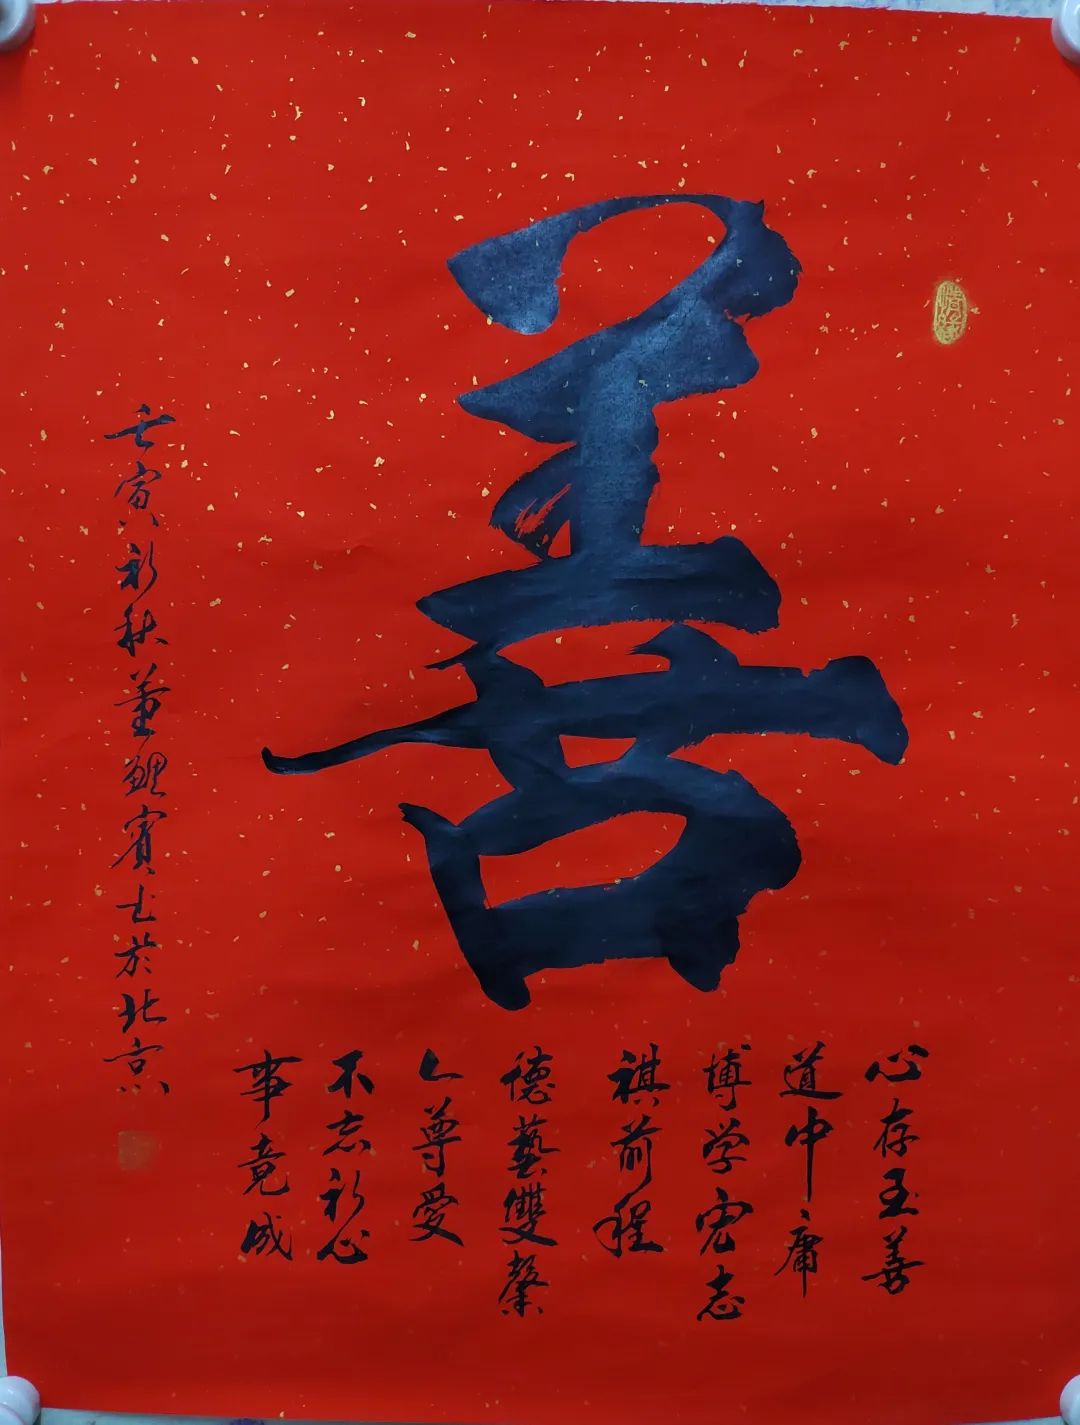 善
心存至善
道中庸
博学宏志
祺前程
德藝雙馨
人尊愛
不忘初心
事竟成
壬寅初秋董鲤賓书於北京